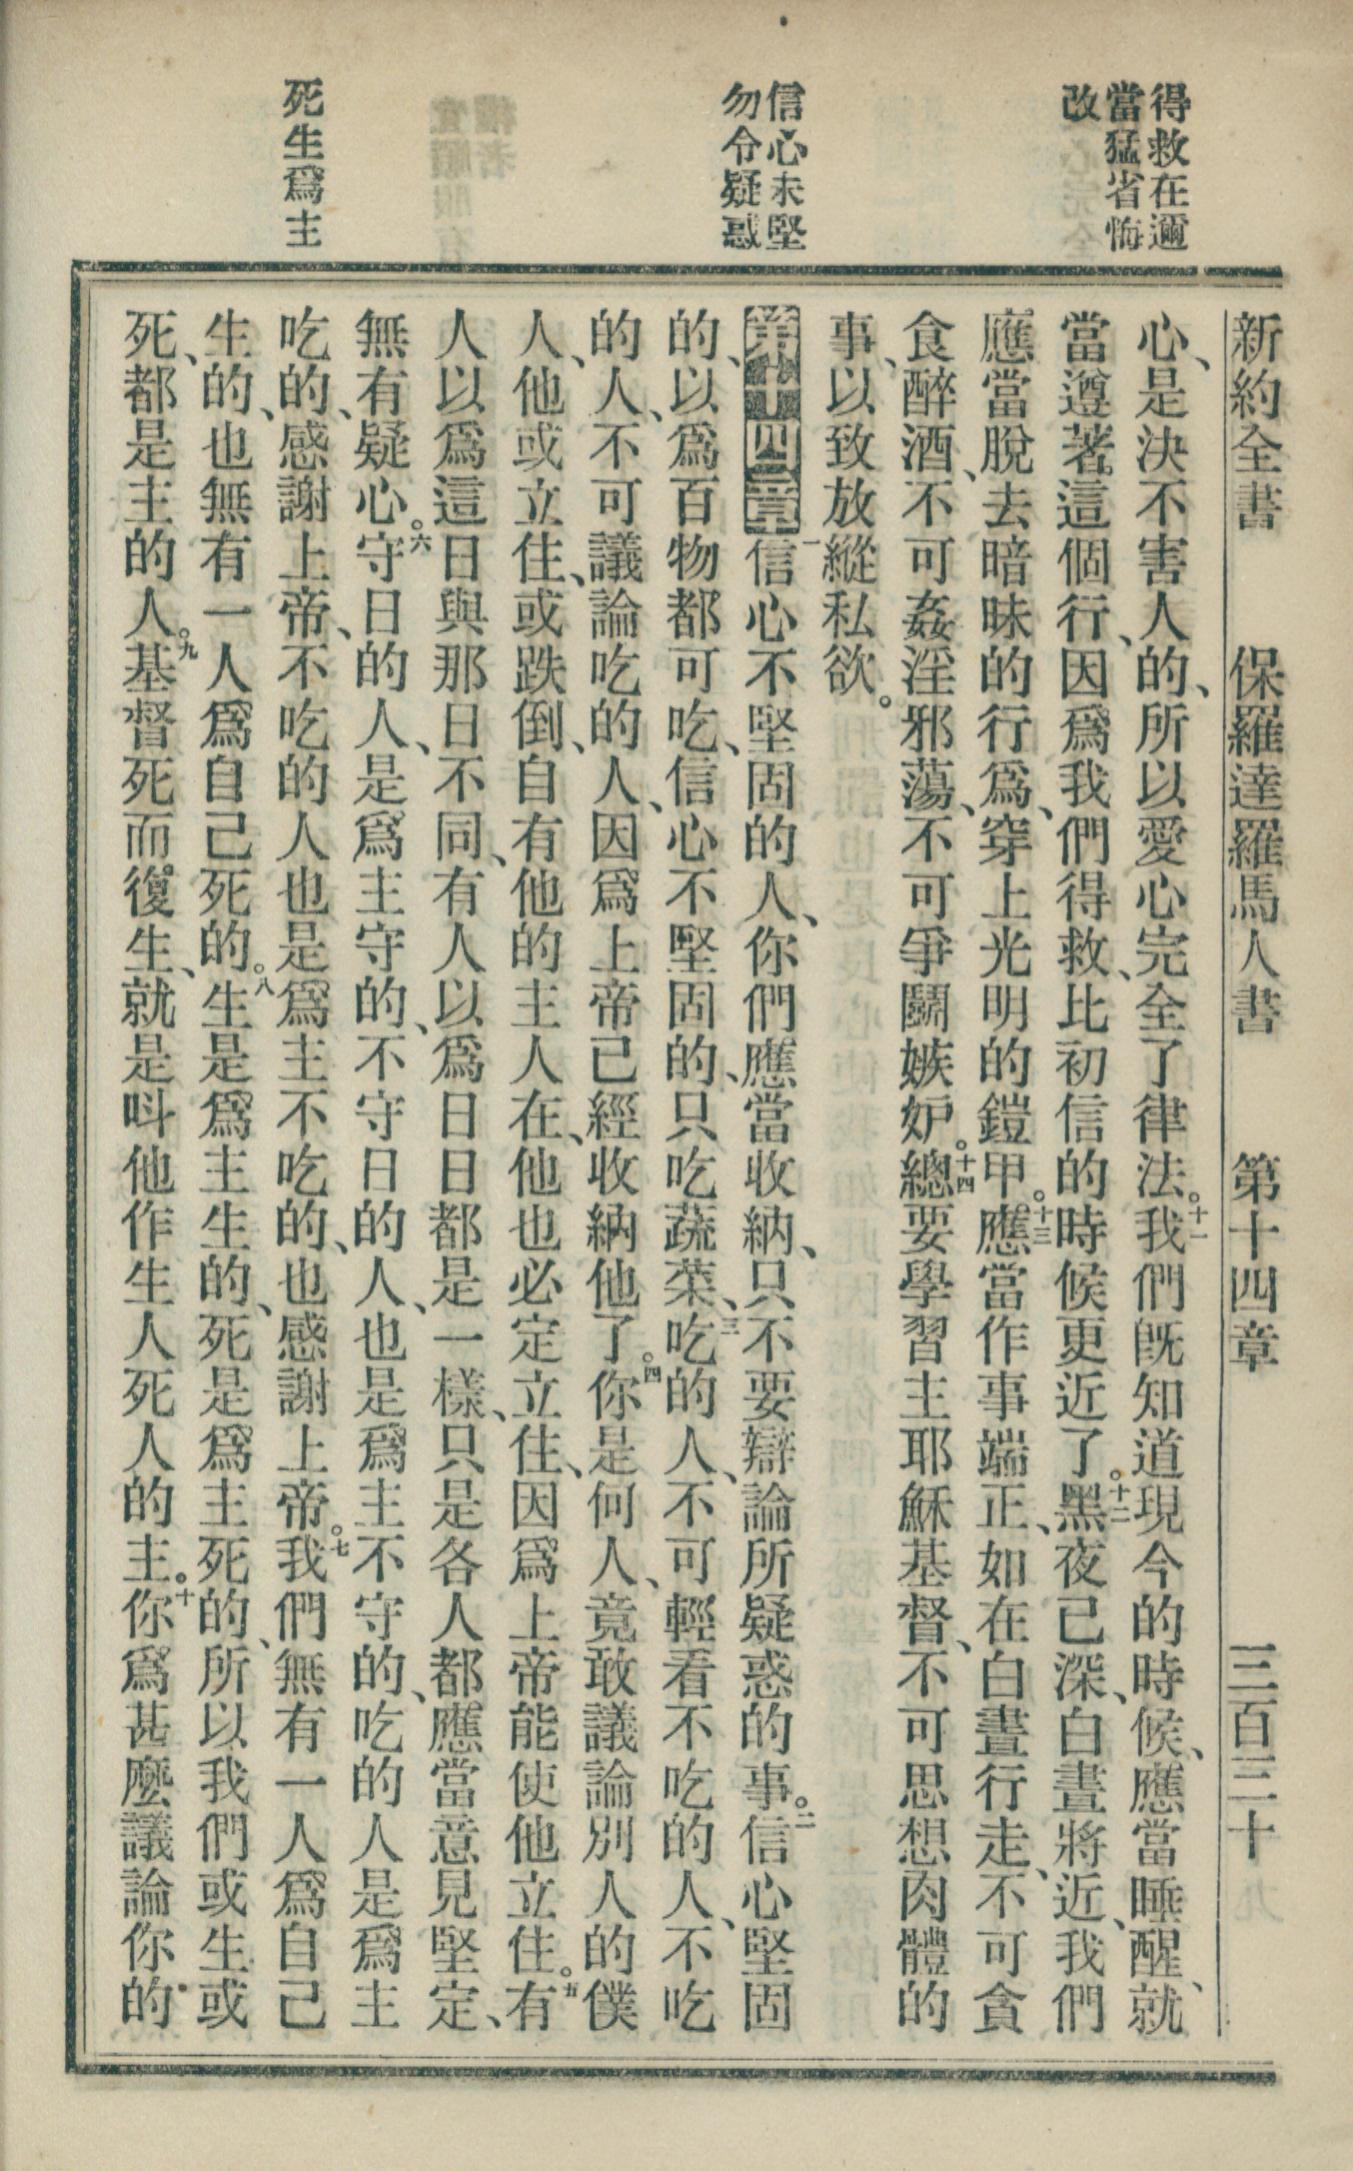 得救在邇
當猛省悔
改
信心未堅
勿令疑惑
死生爲主
新約全書　保羅達羅馬人書　第十四章　三百三十
心、是決不害人的、所以愛心完全了律法。十一我們旣知道現今的時候、應當睡醒、就
當遵著這個行、因爲我們得救、比初信的時候更近了。十二黑夜已深、白晝將近、我們
應當脫去暗昧的行爲、穿上光明的鎧甲。十三應當作事端正、如在白晝行走、不可貪
食醉酒、不可姦淫邪蕩、不可爭鬭嫉妒。十四總要學習主耶穌基督、不可思想肉體的
事、以致放縱私欲。
第十四章一信心不堅固的人、你們應當收納、只不要辯論所疑惑的事。二信心堅固
的、以爲百物都可吃、信心不堅固的、只吃蔬菜、三吃的人、不可輕看不吃的人、不吃
的人、不可議論吃的人、因爲上帝已經收納他了。四你是何人、竟敢議論別人的僕
人、他或立住、或跌倒、自有他的主人在、他也必定立住、因爲上帝能使他立住。五有
人以爲這日與那日不同、有人以爲日日都是一樣、只是各人都應當意見堅定、
無有疑心。六守日的人、是爲主守的、不守日的人、也是爲主不守的、吃的人是爲主
吃的、感謝上帝、不吃的人也是爲主不吃的、也感謝上帝。七我們無有一人爲自己
生的、也無有一人爲自己死的。八生是爲主生的、死是爲主死的、所以我們或生或
死、都是主的人。九基督死而復生、就是呌他作生人死人的主。十你爲甚麽議論你的